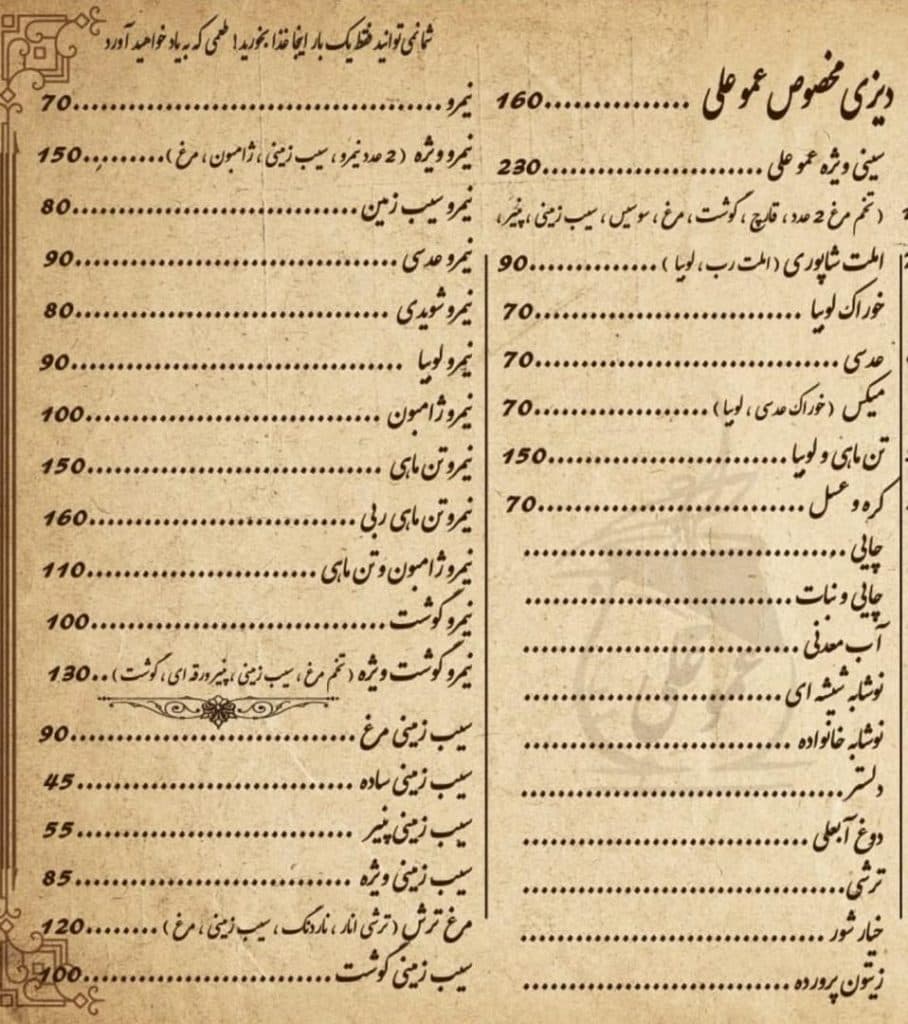 شما نمی توانید فقط یک بار اینجا غذا بخورید! طعمی که به یاد خواهید آورد
دیزی مخصوص عمو علی ............... 160
سینی ویژه عمو علی ....................... 230
( تخم مرغ 2 عدد ، قارچ ، گوشت ، مرغ ، سوسیس ، سیب زمینی ، پنیر ،
املت شاپوری ( املت رب ، لوبیا ) ............. 90
خوراک لوبیا ........................... 70
عدسی ............................... 70
میکس ( خوراک عدسی ، لوبیا ) .................. 70
تن ماهی و لوبیا ........................ 150
کره و عسل ........................... 70
چایی ..................................
چایی و نبات ............................
آب معدنی ............................
نوشابه شیشه ای ..........................
نوشابه خانواده ...........................
دلستر .................................
دوغ آبعلی .............................
ترشی .................................
خیار شور ..............................
زیتون پرورده ...........................
نیمرو ..................................... 70
نیمرو ویژه ( 2 عدد نیمرو ، سیب زمینی ، ژامبون ، مرغ ) .......... 150
نیمرو سیب زمین ............................. 80
نیمرو عدسی ................................. 90
نیمرو شویدی ................................ 80
نیمرو لوبیا ................................. 90
نیمرو ژامبون .............................. 100
نیمرو تن ماهی .............................. 150
نیمرو تن ماهی ربی ........................... 160
نیمرو ژامبون و تن ماهی ....................... 110
نیمرو گوشت .............................. 100
نیمرو گوشت ویژه ( تخم مرغ ، سیب زمینی ، پنیر ورقه ای ، گوشت ) .. 130
سیب زمینی مرغ ............................. 90
سیب زمینی ساده ............................ 45
سیب زمینی پنیر ............................ 55
سیب زمینی ویژه ............................ 85
مرغ ترش ( ترشی انار ، ناردنگ ، سیب زمینی ، مرغ ) ........ 120
سیب زمینی گوشت ......................... 100
عمو علی